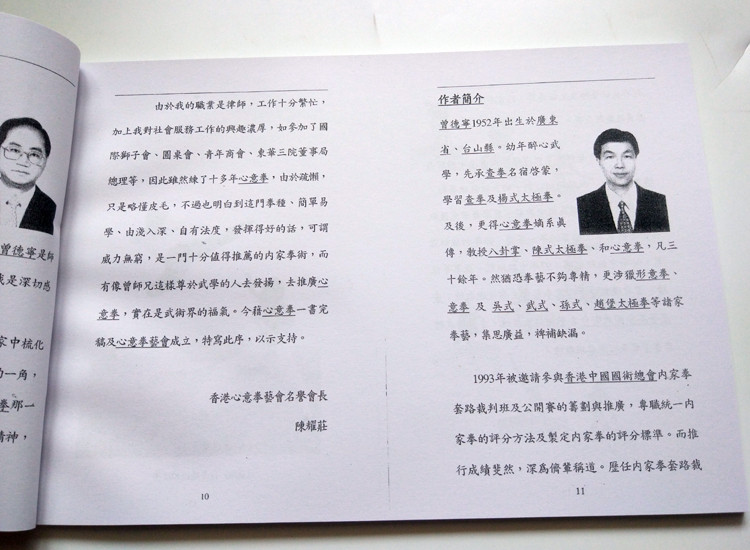 曾德寧是師
我是深切感
家中梳化
的一角，
拳那一
精神，
由於我的職業是律師，工作十分繁忙，
加上我對社會服務工作的興趣濃厚，如參加了國
際獅子會、圓桌會、青年商會、東華三院董事局
總理等，因此雖然練了十多年心意拳，由於疏懶，
只是略懂皮毛，不過也明白到這門拳種、簡單易
學、由淺入深、自有法度，發揮得好的話，可謂
威力無窮，是一門十分值得推薦的內家拳術，而
有像曾師兄這樣尊於武學的人去發揚，去推廣心
意拳，實在是武術界的福氣。今藉心意拳一書完
稿及心意拳藝會成立，特寫此序，以示支持。
香港心意拳藝會名譽會長
陳耀莊
10
作者簡介
曾德寧1952年出生於廣東
省、台山縣。幼年醉心武
學，先承查拳名宿啓蒙，
學習查拳及楊式太極拳。
及後，更得心意拳嫡系眞
傳，教授八卦掌、陳式太極拳、和心意拳，凡三
十餘年。然猶恐拳藝不夠專精，更涉獵形意拳、
意拳 及 吳式、武式、孫式、趙堡太極拳等諸家
拳藝，集思廣益，裨補缺漏。
1993年被邀請參與香港中國國術總會內家拳
套路裁判班及公開賽的籌劃與推廣，專職統一內
家拳的評分方法及製定內家拳的評分標準。而推
行成績斐然，深爲儕輩稱道。歷任內家拳套路裁
11